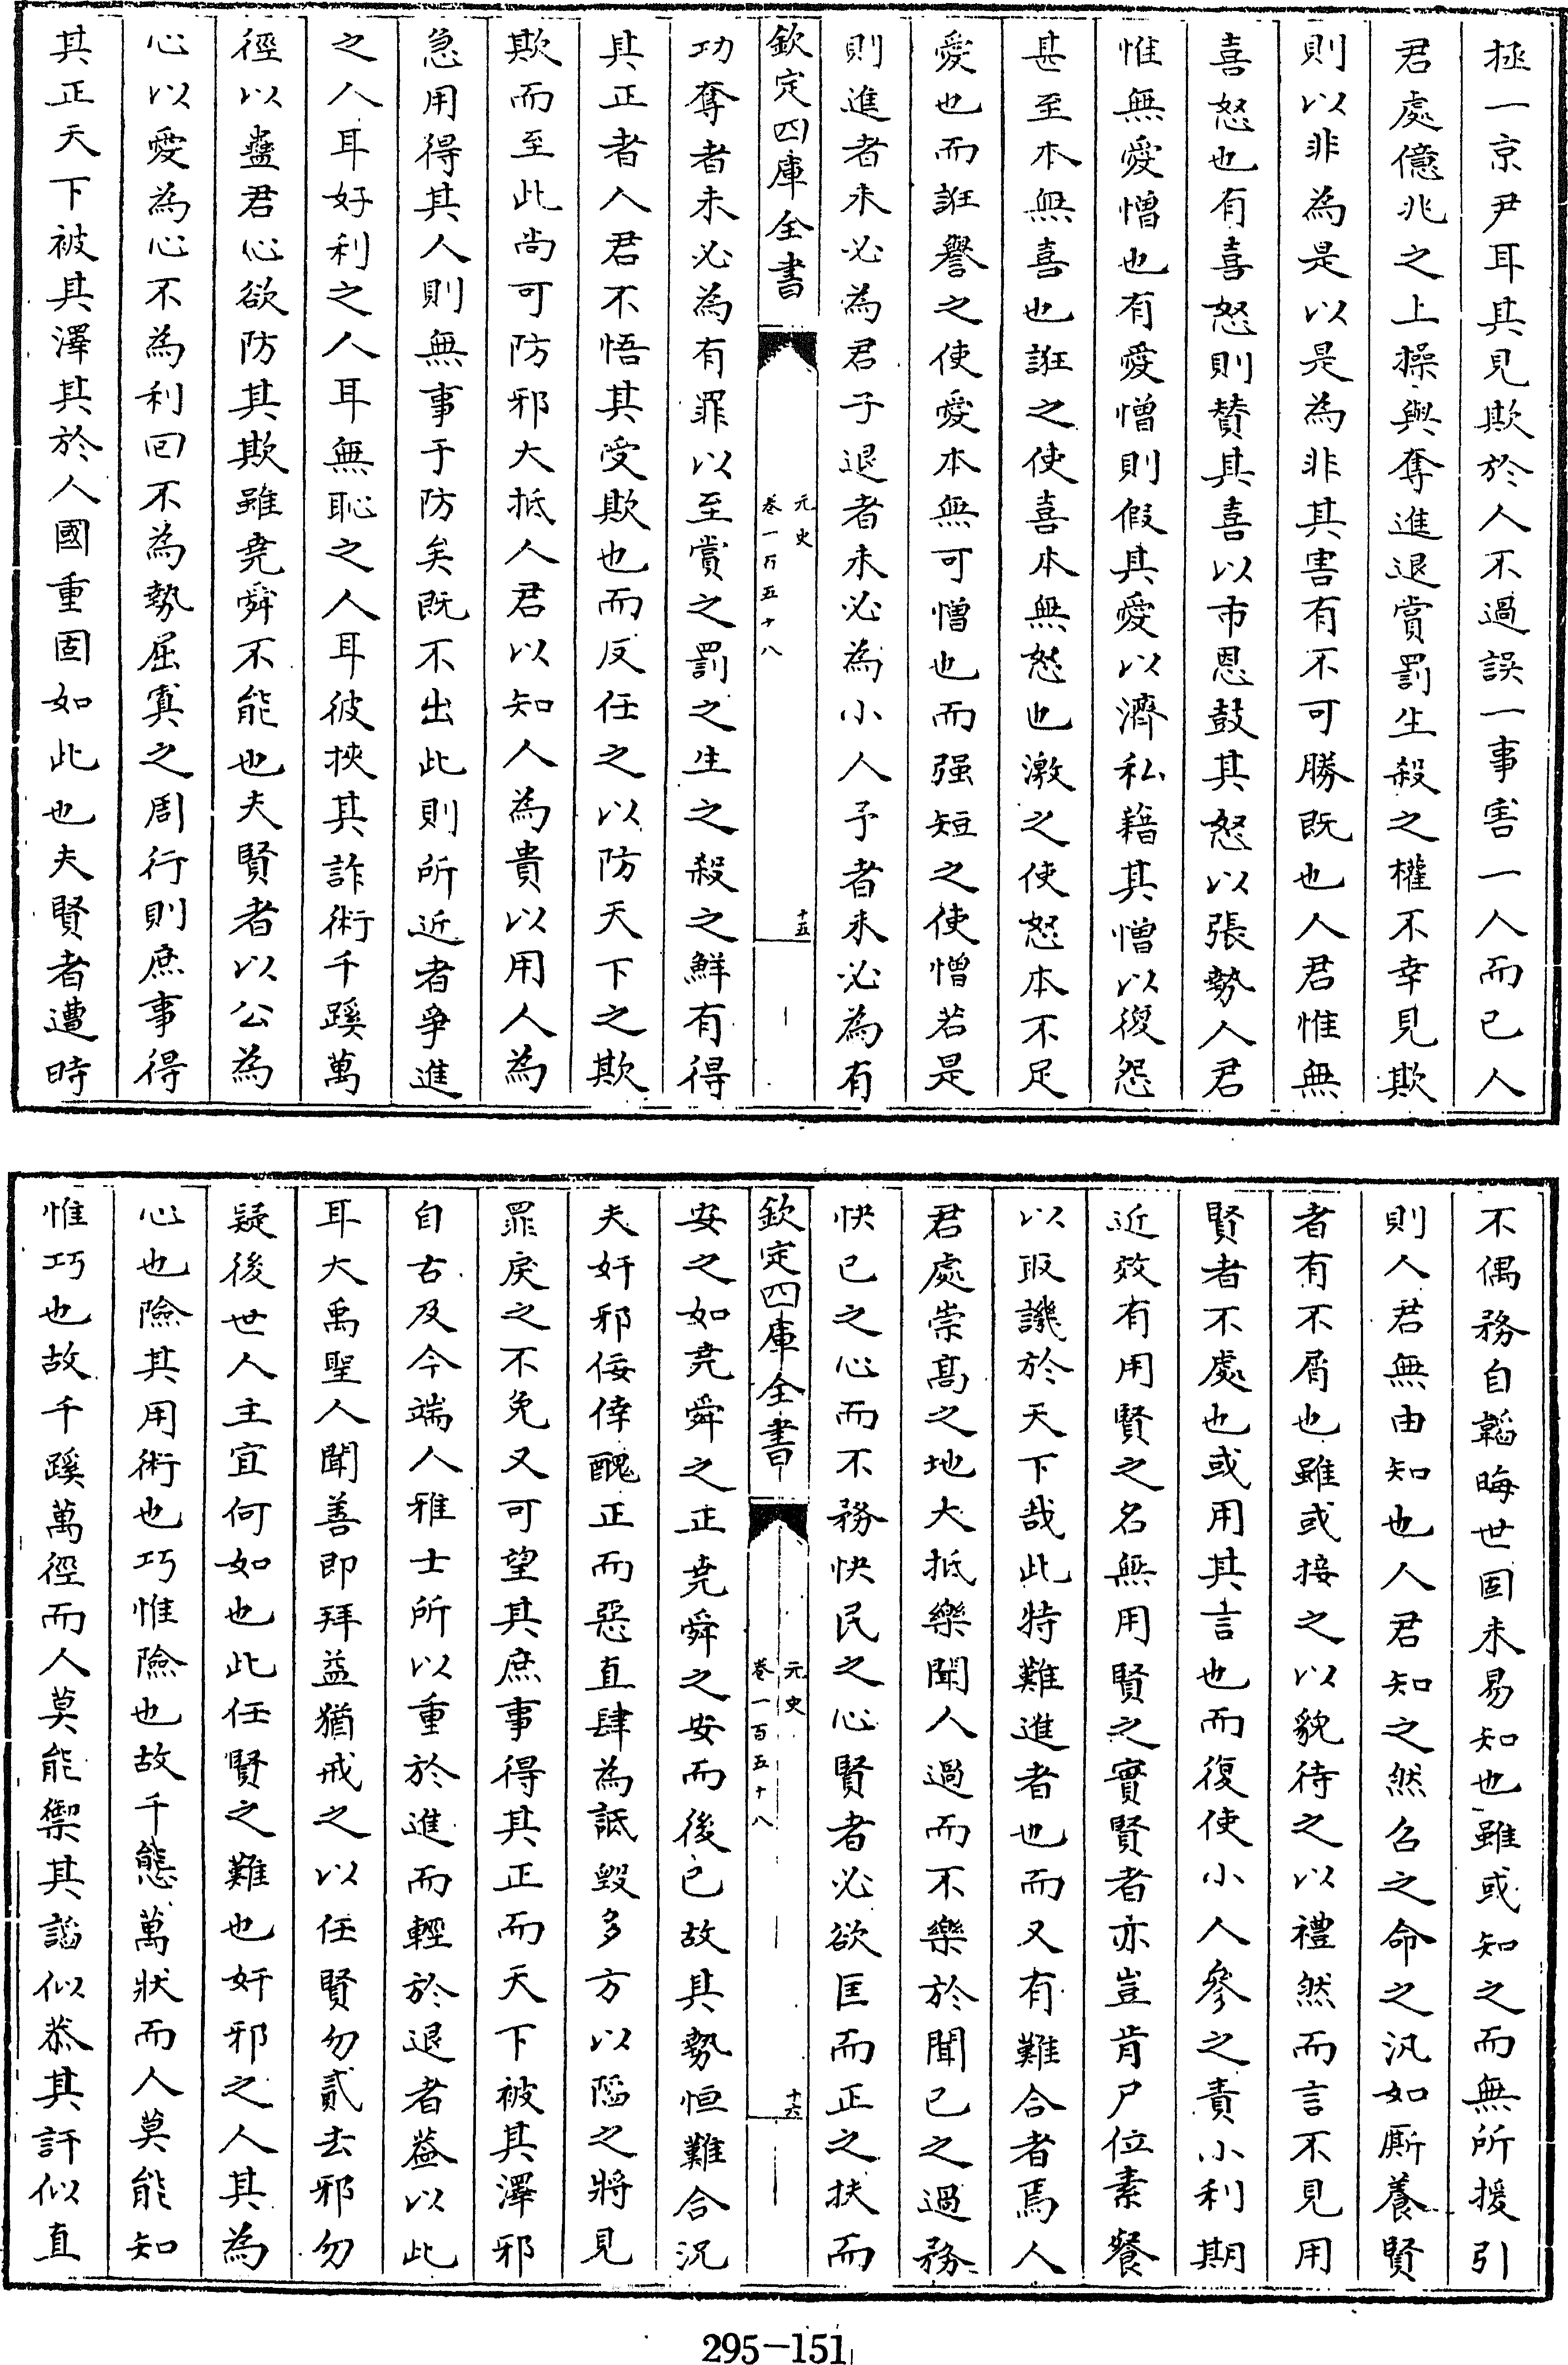 拯一京尹耳其見欺於人不過誤一事害一人而已人
君處億兆之上操與奪進退賞罰生殺之權不幸見欺
則以非為是以是為非其害有不可勝既也人君惟無
喜怒也有喜怒則贊其喜以市恩鼓其怒以張勢人君
惟無愛憎也有愛憎則假其愛以濟私藉其憎以復怨
甚至本無喜也誑之使喜本無怒也激之使怒本不足
愛也而誑譽之使愛本無可憎也而强短之使憎若是
則進者未必為君子退者未必為小人予者未必為有
欽定四庫全書
元史
卷一百五十八
十五
功奪者未必為有罪以至賞之罰之生之殺之鮮有得
其正者人君不悟其受欺也而反任之以防天下之欺
欺而至此尚可防邪大抵人君以知人為貴以用人為
急用得其人則無事于防矣既不出此則所近者爭進
之人耳好利之人耳無恥之人耳彼挾其詐術千蹊萬
徑以蠱君心欲防其欺雖堯舜不能也夫賢者以公為
心以愛為心不為利回不為勢屈寘之周行則庶事得
其正天下被其澤其於人國重固如此也夫賢者遭時
不偶務自韜晦世固未易知也雖或知之而無所援引
則人君無由知也人君知之然召之命之汎如厮養賢
者有不屑也雖或接之以貌待之以禮然而言不見用
賢者不處也或用其言也而復使小人參之責小利期
近效有用賢之名無用賢之實賢者亦豈肯尸位素餐
以取譏於天下哉此特難進者也而又有難合者焉人
君處崇高之地大抵樂聞人過而不樂於聞已之過務
快已之心而不務快民之心賢者必欲匡而正之扶而
欽定四庫全書
元史
卷一百五十八
十六
安之如堯舜之正堯舜之安而後已故其勢恒難合況
夫奸邪佞倖醜正而惡直肆為詆毀多方以陷之將見
罪戾之不免又可望其庶事得其正而天下被其澤邪
自古及今端人雅士所以重於進而輕於退者葢以此
耳大禹聖人聞善即拜益猶戒之以任賢勿貳去邪勿
疑後世人主宜何如也此任賢之難也奸邪之人其為
心也險其用術也巧惟險也故千態萬狀而人莫能知
惟巧也故千蹊萬徑而人莫能禦其諂似恭其訐似直
295-151